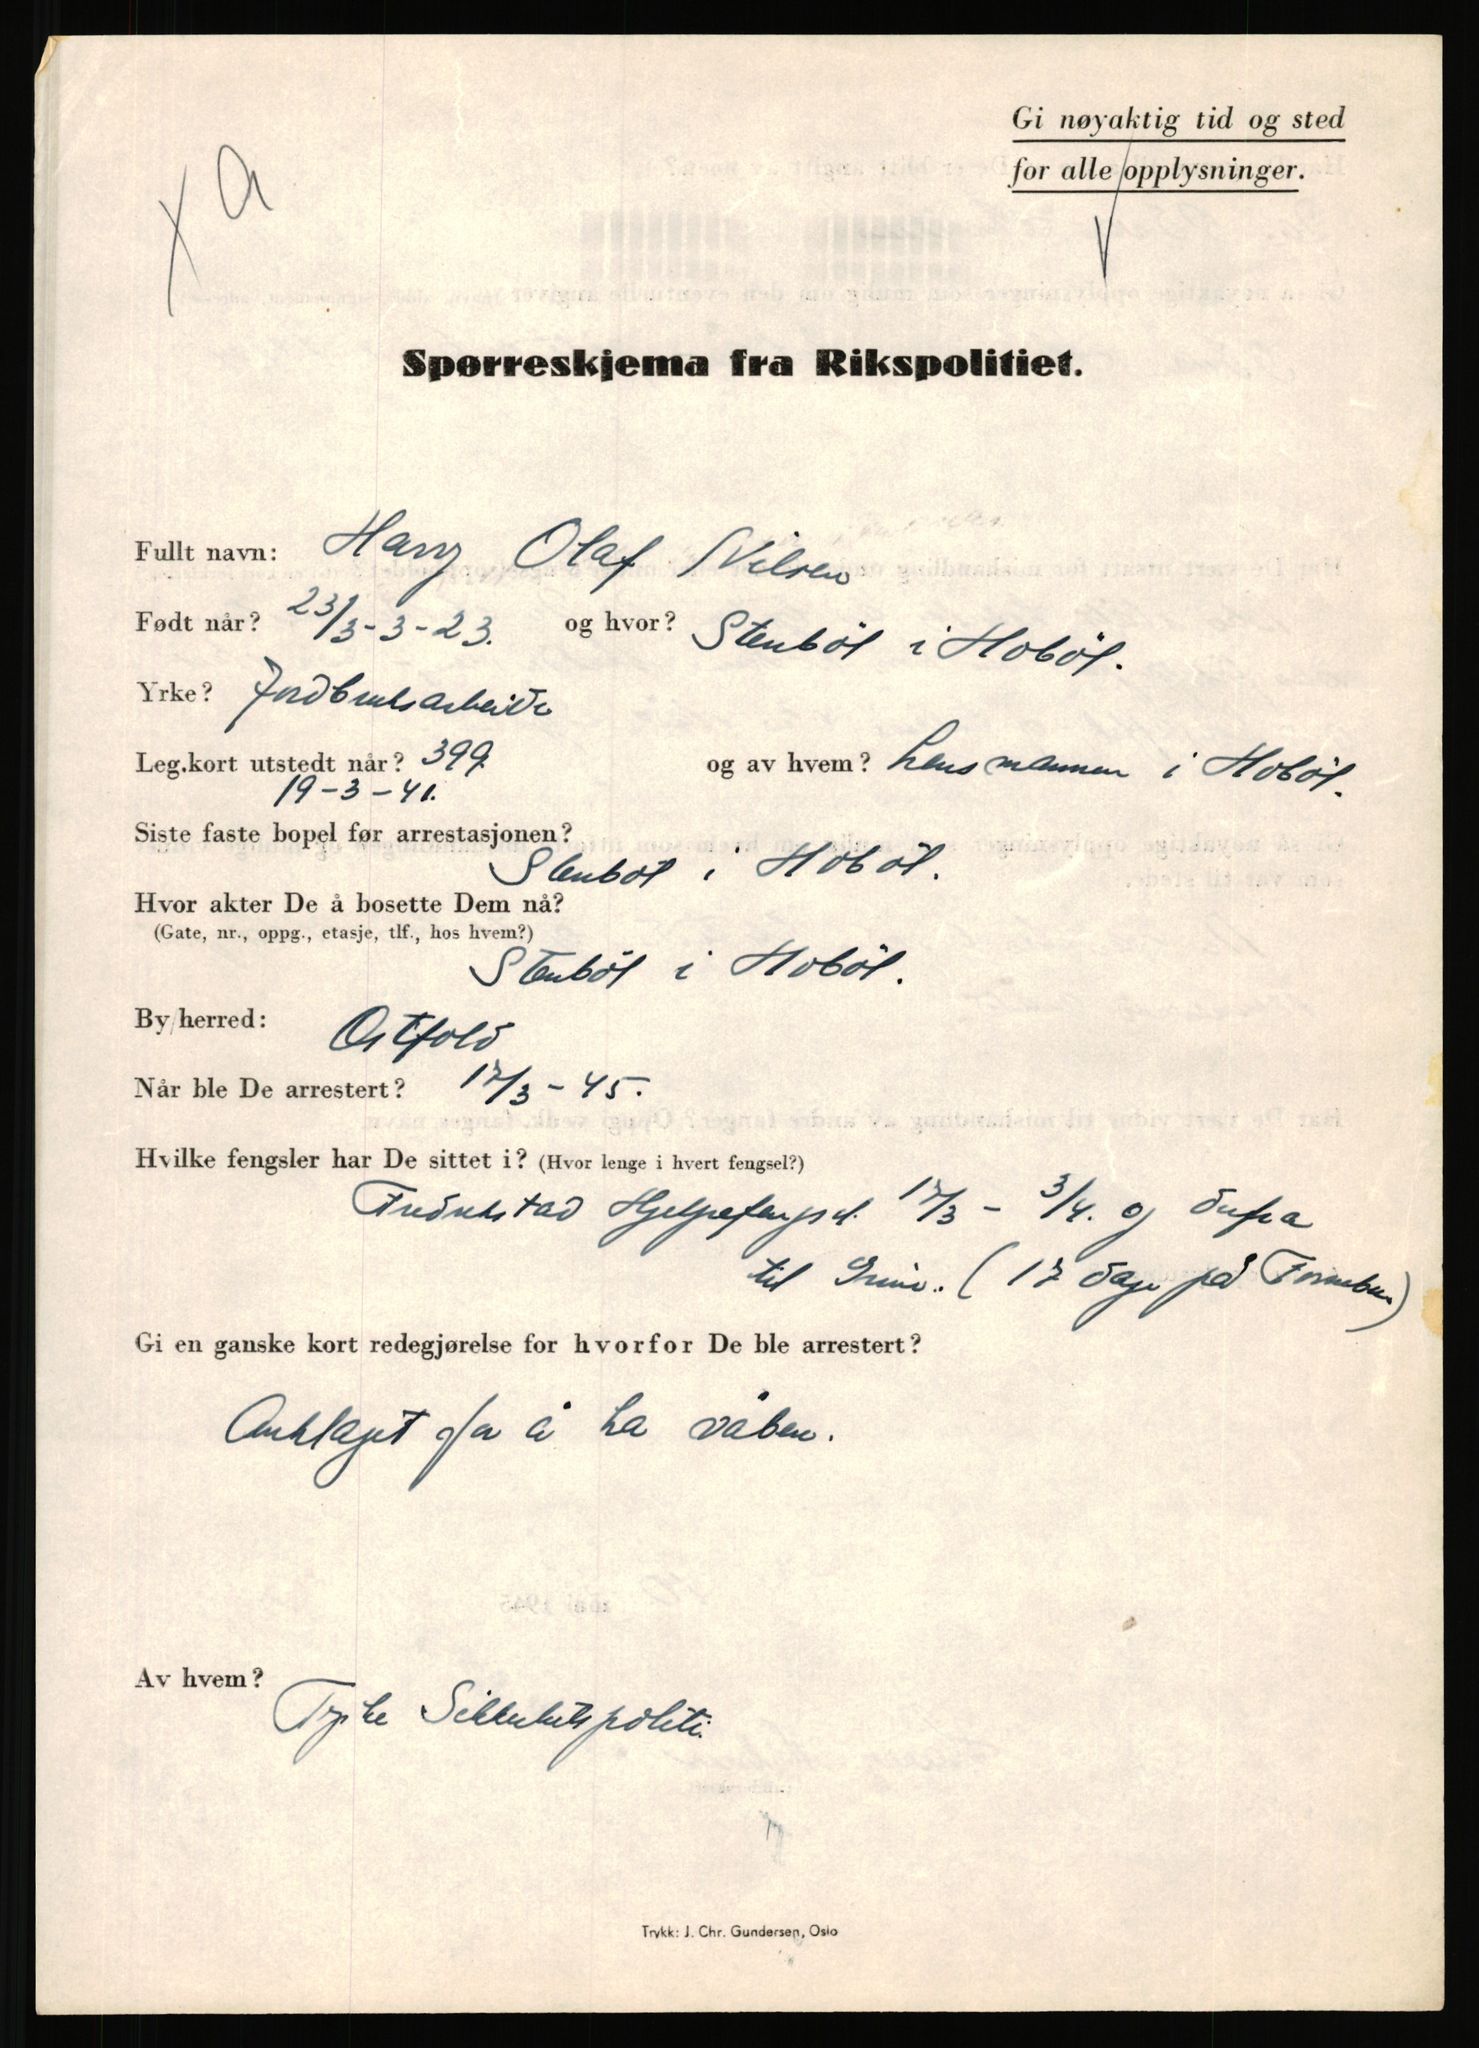 Gi nøyaktig tid og sted
for alle opplysninger.
x a
Spørreskjema fra Rikspolitiet.
Fullt navn: Harry Olaf Nilsen
Født når? 23/3-3-23. og hvor? Stenböl i Hoböl.
Yrke? Jordbruksarbeider
Leg.kort utstedt når? 399. og av hvem? Lensmannen i Hoböl.
19-3-41.
Siste faste bopel før arrestasjonen?
Stenböl i Hoböl.
Hvor akter De å bosette Dem nå?
(Gate, nr., oppg., etasje, tlf., hos hvem?)
Stenböl i Hoböl.
By/herred: Østfold
Når ble De arrestert? 17/3-45.
Hvilke fengsler har De sittet i? (Hvor lenge i hvert fengsel?)
Fredrikstad Hjelpefengsel. 17/3 - 3/4. og derfra
til Grini. (17 dage på Fornebu)
Gi en ganske kort redegjørelse for hvorfor De ble arrestert?
Anklaget for å ha våben.
Av hvem?
Tyske Sikkerhetspoliti.
Trykk: J. Chr. Gundersen, Oslo